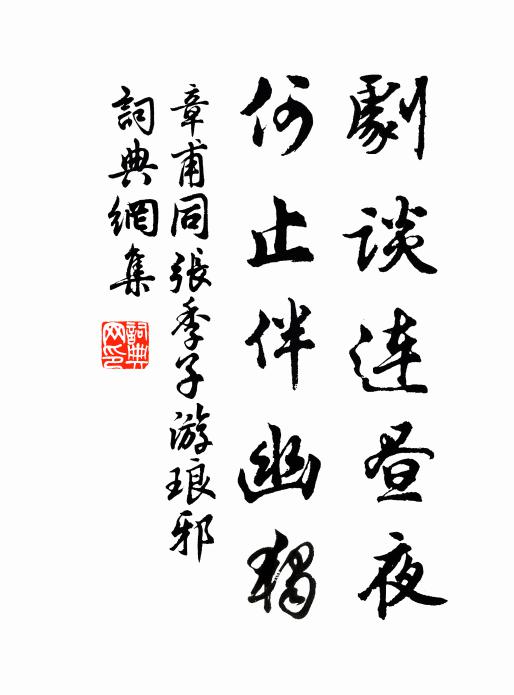 劇談連昼夜
何止伴幽独
章甫同張季子游琅邪
詞典網集
詞典网印